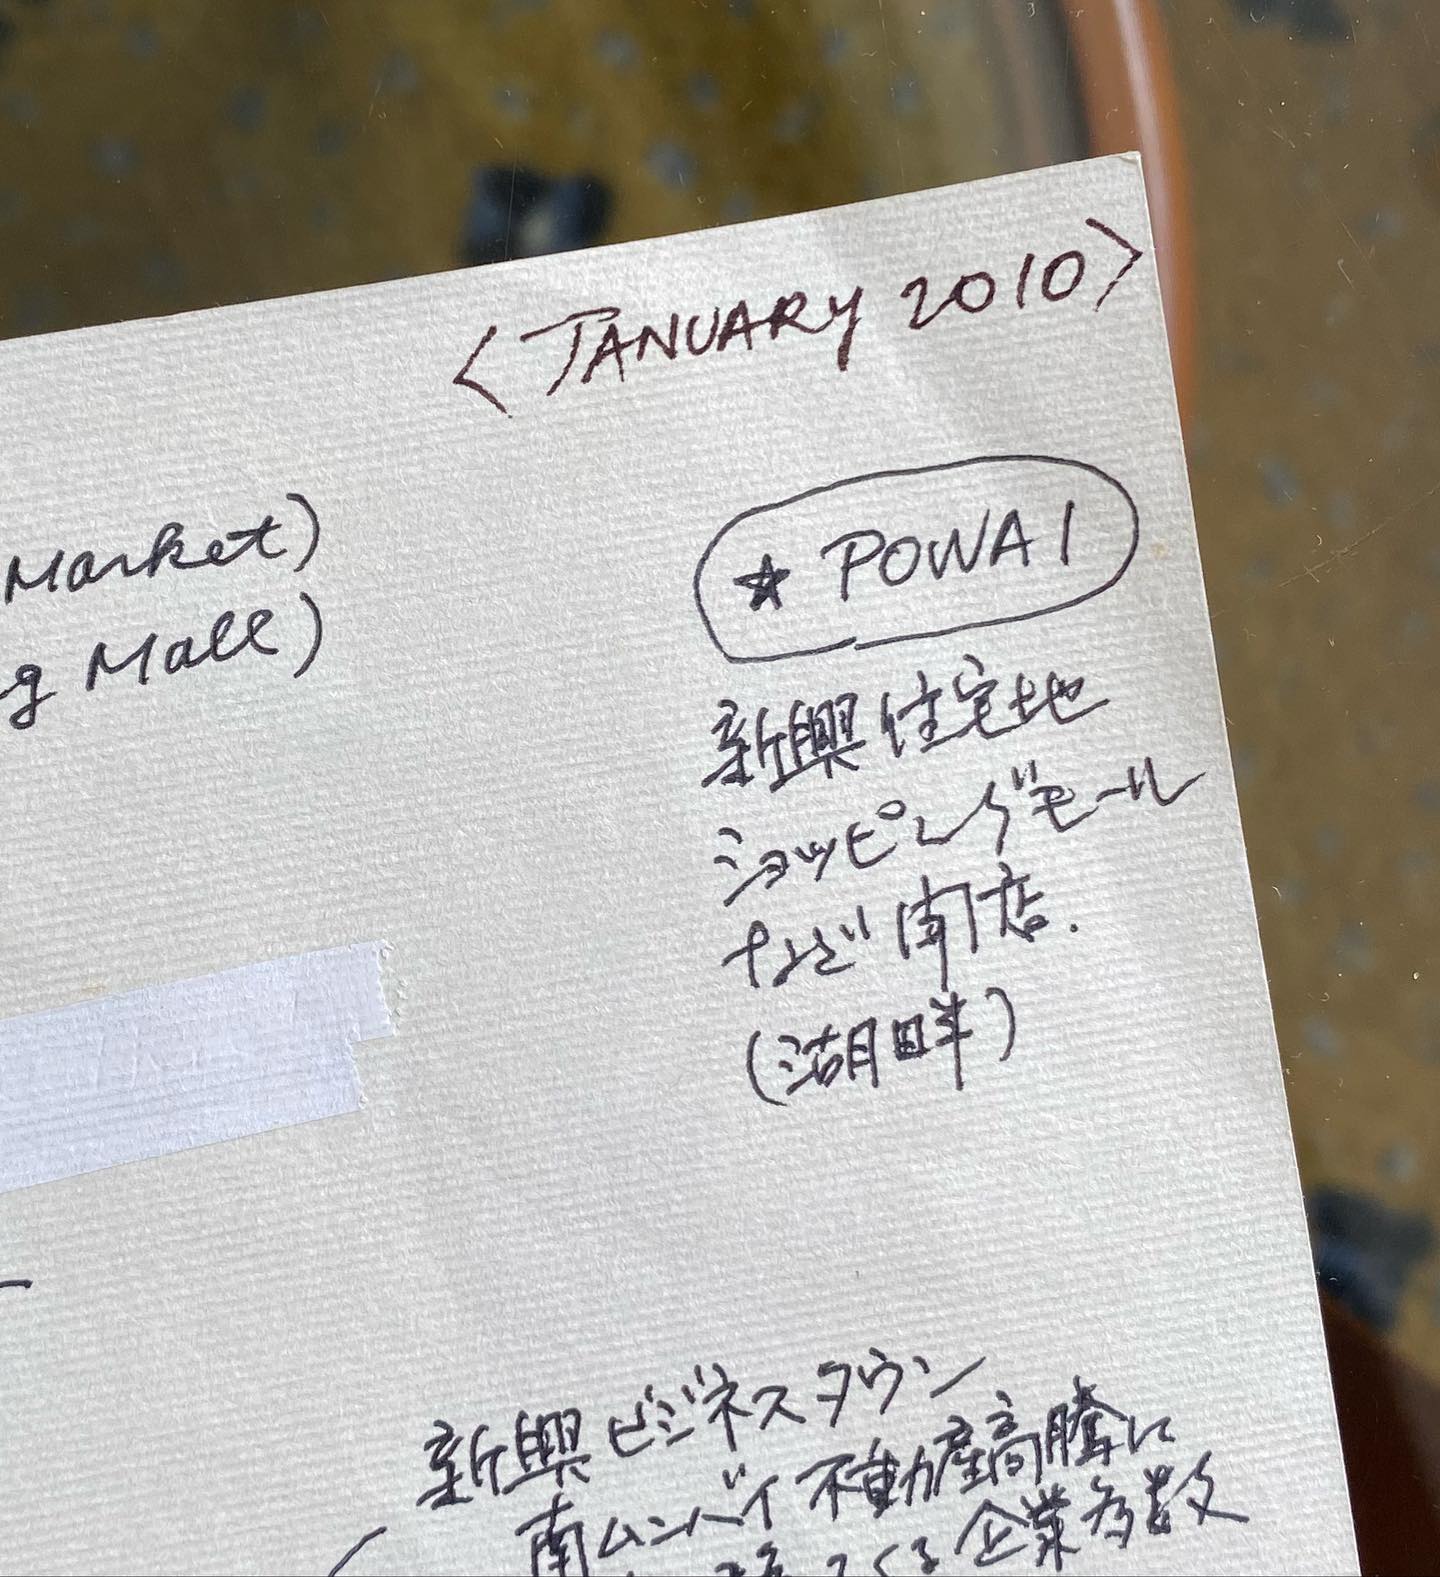 <JANUARY 2010>
Market)
g Mall)
★ POWAI
新興住宅地
ショッピングモール
など開店.
(湖畔)
新興ビジネスタウン
南ムンバイ不動産高騰に
てくる企業多数